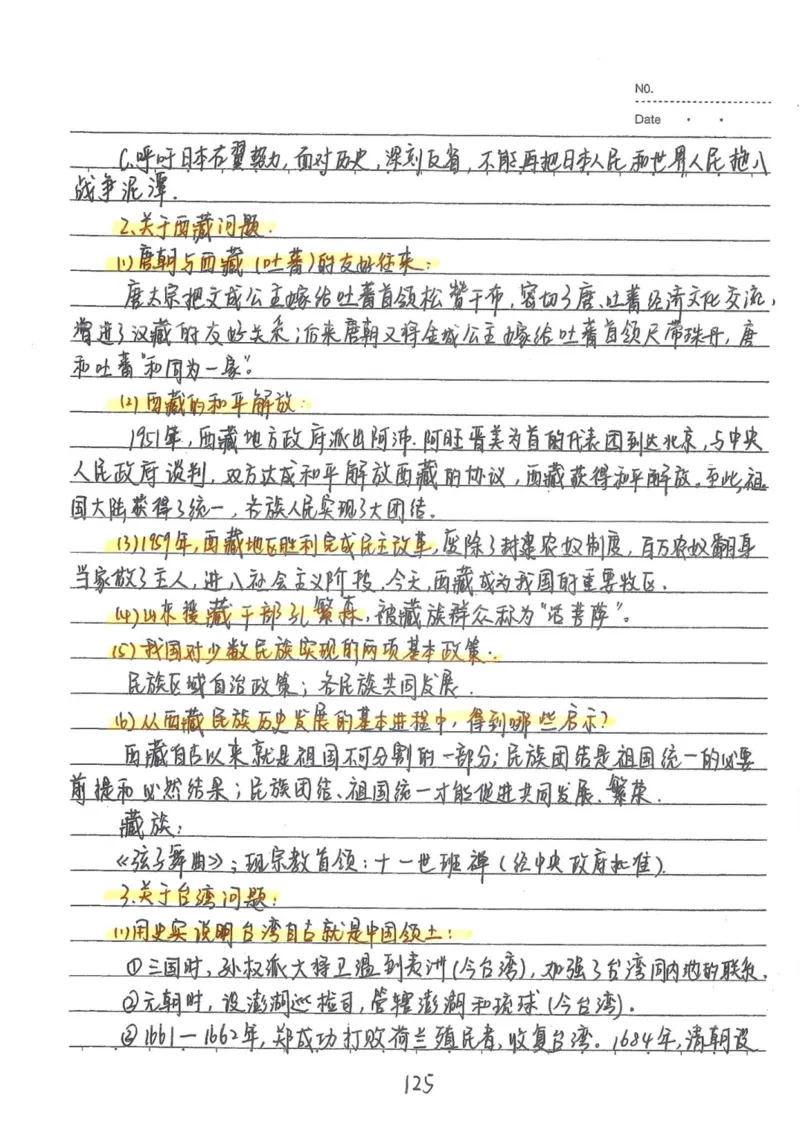 NO.
Date
C.呼吁日本右翼势力,面对历史,深刻反省,不能再把日本人民和世界人民拖入
战争泥潭.
2.关于西藏问题.
(1)唐朝与西藏(吐蕃)的友好往来:
唐太宗把文成公主嫁给吐蕃首领松赞干布,密切了唐、吐蕃经济文化交流,
增进了汉藏的友好关系;后来唐朝又将金城公主嫁给吐蕃首领尺带珠丹,唐
和吐蕃"和同为一家"。
(2)西藏的和平解放:
1951年,西藏地方政府派出阿沛·阿旺晋美为首的代表团到达北京,与中央
人民政府谈判,双方达成和平解放西藏的协议,西藏获得和平解放。至此,祖
国大陆获得了统一,各族人民实现了大团结。
(3)1959年,西藏地区胜利完成民主改革,废除了封建农奴制度,百万农奴翻身
当家做了主人,进入社会主义阶段,今天,西藏成为我国的重要牧区.
(4)山东援藏干部孔繁森,被藏族群众称为"活菩萨"。
(5)我国对少数民族实现的两项基本政策.
民族区域自治政策;各民族共同发展.
(6)从西藏民族历史发展的基本进程中,得到哪些启示?
西藏自古以来就是祖国不可分割的一部分;民族团结是祖国统一的必要
前提和必然结果;民族团结、祖国统一才能促进共同发展、繁荣.
藏族:
《弦子舞曲》;现宗教首领:十一世班禅(经中央政府批准).
3.关于台湾问题:
(1)用史实说明台湾自古就是中国领土:
①三国时,孙权派大将卫温到夷洲(今台湾),加强了台湾同内地的联系.
②元朝时,设澎湖巡检司,管辖澎湖和琉球(今台湾).
③1661—1662年,郑成功打败荷兰殖民者,收复台湾。1684年,清朝设
125